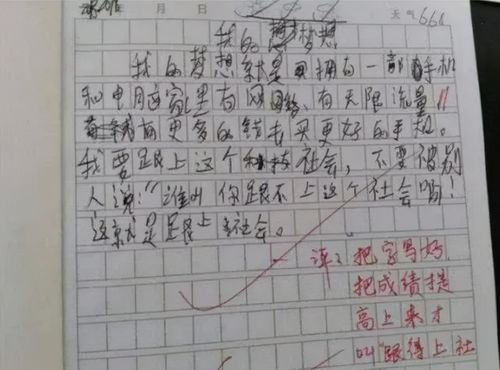 月 日 天气 666
我的梦想
我的梦想就是拥有一部手机
和电脑家里有网络，有无限流量，
有更多的钱去买更好的手机。
我要跟上这个科技社会，不要被别
人说："谁叫你跟不上这个社会啊！
这就是跟上社会。
译：把字写好，
把成绩提
高上来才
叫"跟得上社